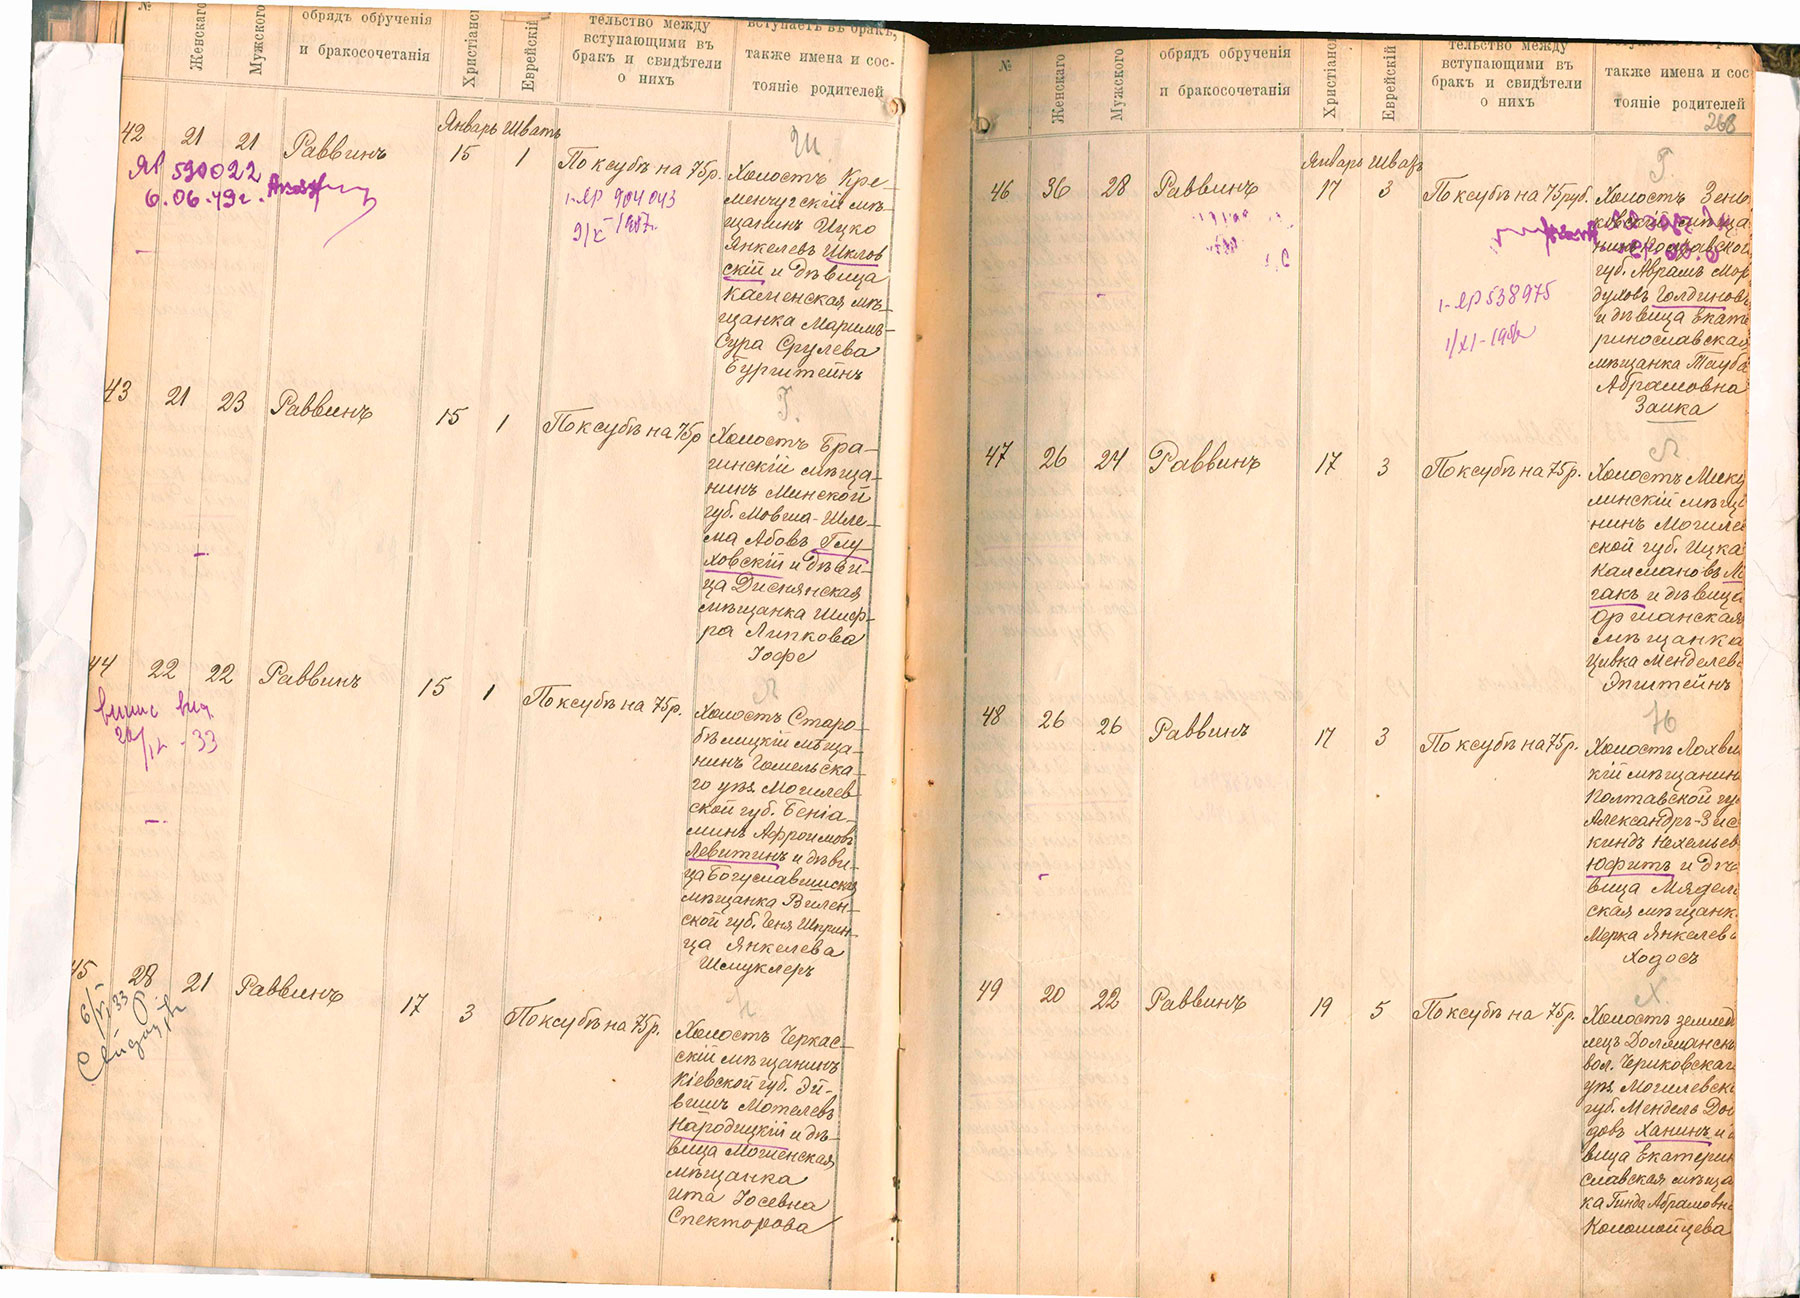 №
Женскаго
Мужского
обрядъ обрученія
и бракосочетанія
Христіанс
Еврейскій
тельство между
вступающими въ
бракъ и свидѣтели
о нихъ
вступаетъ въ бракъ,
также имена и сос-
тояніе родителей
Январь Шватъ
42 21 21 Раввинъ 15 1 По ксубѣ на 75р.
Ш
ЯР 590022
6.06.49г.
1-ЯР 904043
Холостъ Кре-
менчугскій мѣ-
щанинъ Ицко
Янкелевъ Шклов
скій и дѣвица
Каменская мѣ-
щанка Маримъ-
Сура Срулева
Бурштейнъ
43 21 23 Раввинъ 15 1 По ксубѣ на 75р
Г.
Холостъ Бра-
гинскій мѣща-
нинъ Минской
губ. Мовша-Шле-
ма Абовъ Глу-
ховскій и дѣви-
ца Диснянская
мѣщанка Шиф-
ра Липкова
Іофе
44 22 22 Раввинъ 15 1 По ксубѣ на 75р.
Л
33
Холостъ Старо-
бѣлицкій мѣща-
нинъ Гомельска-
го уѣз. Могилев-
ской губ. Беніа-
минъ Афроимовъ
Левитинъ и дѣви-
ца Богуславшиская
мѣщанка Вилен-
ской губ. Геня Шприн-
ца Янкелева
Шмуклеръ
45 28 21 Раввинъ 17 3 По ксубѣ на 75р.
Н
Холостъ Черкас-
скій мѣщанинъ
Кіевской губ. Эй-
вишъ Мотелевъ
Народицкій и дѣ-
вица Могиенская
мѣщанка
Ита Іосевна
Спекторова
№
Женскаго
Мужского
обрядъ обрученія
и бракосочетанія
Христіанс
Еврейскій
тельство между
вступающими въ
бракъ и свидѣтели
о нихъ
также имена и сос
тояніе родителей
268
Январь Шватъ
46 36 28 Раввинъ 17 3 По ксубѣ на 75 руб.
Г.
1-ЯР 538975
Холостъ Зень
ковскій мѣща
нинъ Полтавской
губ. Абрамъ Мор
духовъ Голдиновъ
и дѣвица Екате
ринославская
мѣщанка Тауба
Абрамовна
Заика
47 26 24 Раввинъ 17 3 По ксубѣ на 75р.
Л
Холостъ Мику
линскій мѣщ
нинъ Могиле
ской губ. Ицка
Калмановъ Л
гакъ и дѣвица
Оршанская
мѣщанка
Цивка Менделев
Эпштейнъ
48 26 26 Раввинъ 17 3 По ксубѣ на 75р.
Ю
Холостъ Лохви
кій мѣщанин
Полтавской гу
Александръ-Зис
киндъ Нехельев
Юфитъ и дѣ
вица Мядель
ская мѣщанк
Мерка Янкелев
Ходосъ
49 20 22 Раввинъ 19 5 По ксубѣ на 75р.
Х
Холостъ землед
лецъ Долманск
вол. Чериковскаг
уѣз. Могилевск
губ. Мендель До
довъ Ханинъ и
вица Екатерин
славская мѣща
ка Гинда Абрамовн
Коломойцева